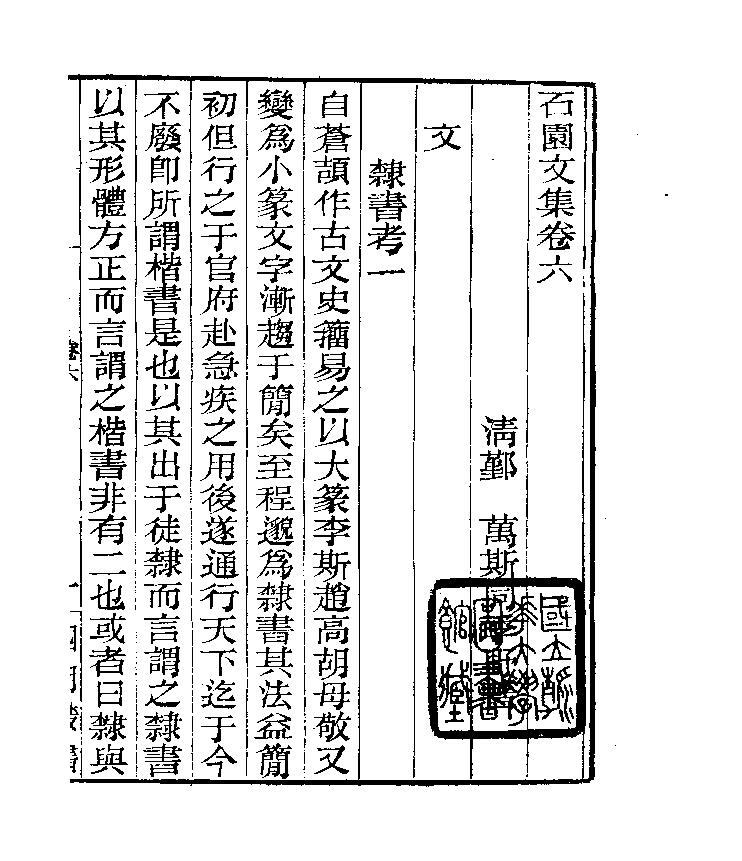 石園文集卷六
清鄞　萬斯同
文
隸書考一
自蒼頡作古文史籀易之以大篆李斯趙高胡母敬又
變為小篆文字漸趨于簡矣至程邈為隸書其法益簡
初但行之于官府赴急疾之用後遂通行天下迄于今
不廢卽所謂楷書是也以其出于徒隸而言謂之隸書
以其形體方正而言謂之楷書非有二也或者曰隸與
卷六